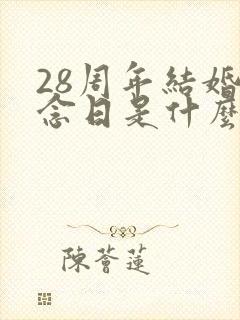 28周年結婚
念日是什麼
陳薈蓮